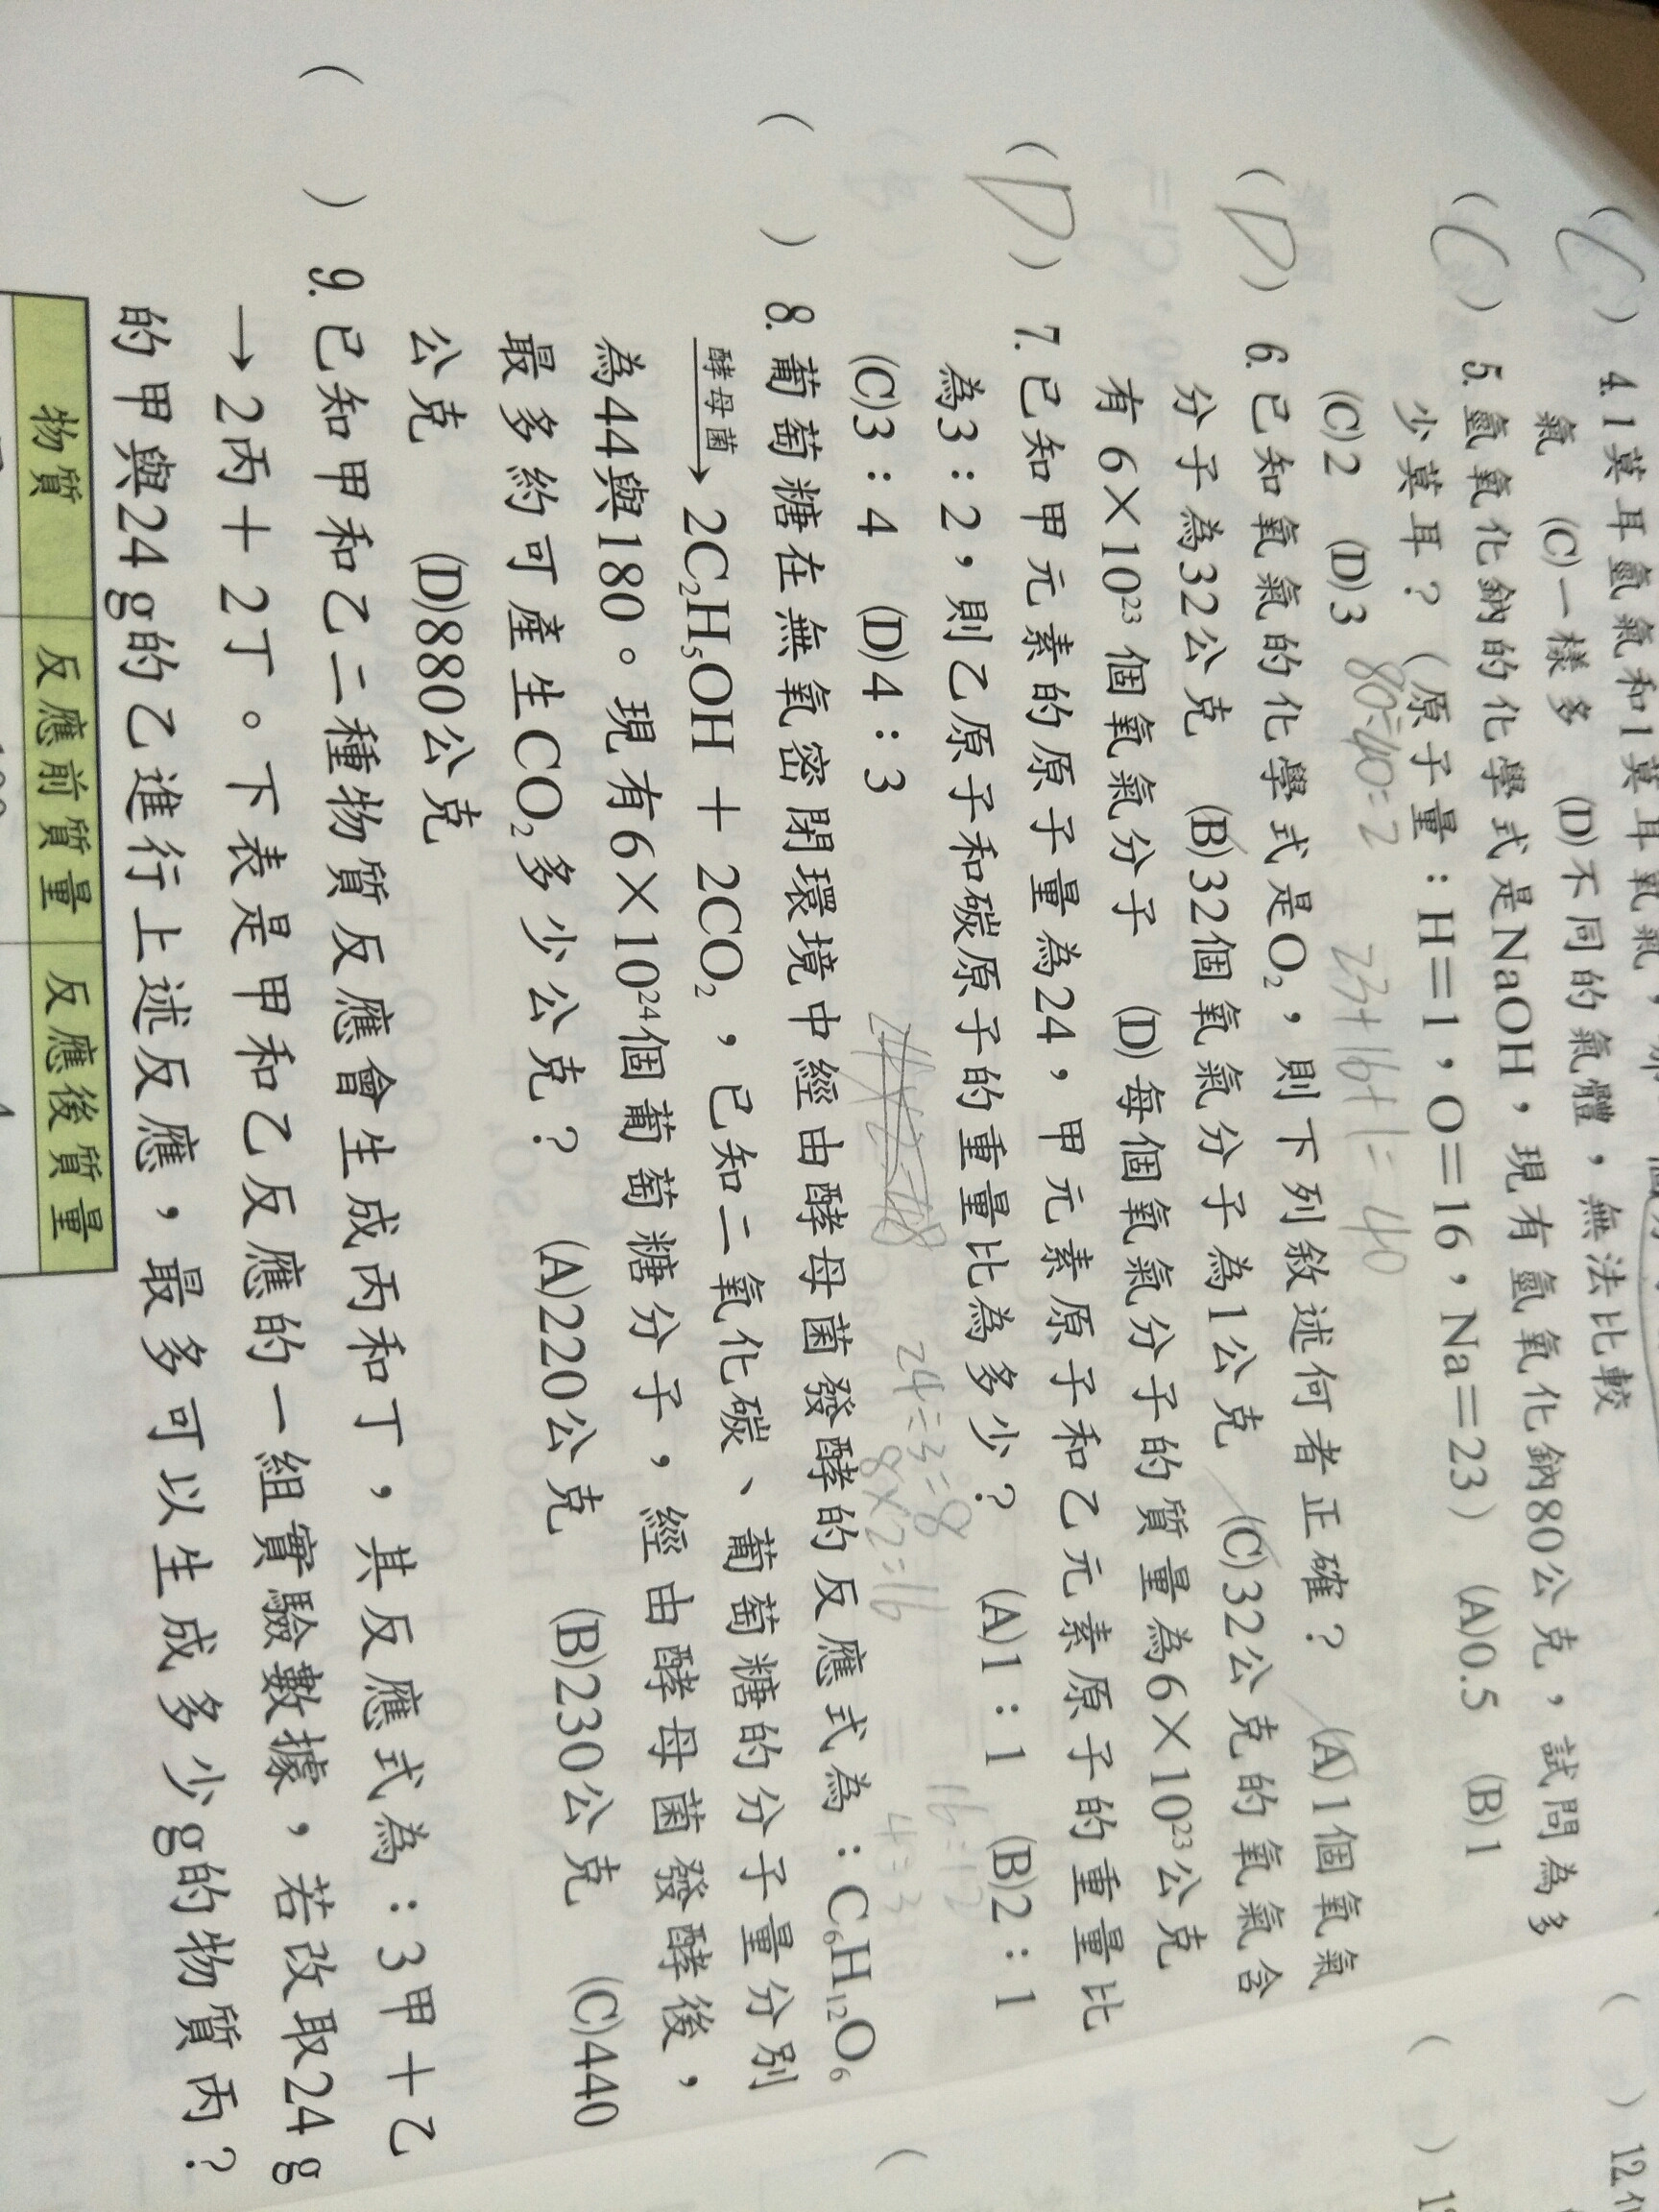 (C) 4. 1莫耳氫氣和1莫耳氧氣，
氣 (C)一樣多 (D)不同的氣體，無法比較
(C) 5. 氫氧化鈉的化學式是NaOH，現有氫氧化鈉80公克，試問為多
少莫耳？（原子量：H＝1，O＝16，Na＝23） (A)0.5 (B)1
(C)2 (D)3 80÷40=2 23+16+1=40
(D) 6. 已知氧氣的化學式是O₂，則下列敘述何者正確？ (A)1個氧氣
分子為32公克 (B)32個氧氣分子為1公克 (C)32公克的氧氣含
有 6×10²³ 個氧氣分子 (D)每個氧氣分子的質量為6×10²³公克
(D) 7. 已知甲元素的原子量為24，甲元素原子和乙元素原子的重量比
為3：2，則乙原子和碳原子的重量比為多少？ (A)1：1 (B)2：1
(C)3：4 (D)4：3
24÷3=8
8×2=16
16:12
=4:3
( ) 8. 葡萄糖在無氧密閉環境中經由酵母菌發酵的反應式為：C₆H₁₂O₆
酵母菌→ 2C₂H₅OH ＋ 2CO₂，已知二氧化碳、葡萄糖的分子量分別
為44與180。現有6×10²⁴個葡萄糖分子，經由酵母菌發酵後，
最多約可產生CO₂多少公克？ (A)220公克 (B)230公克 (C)440
公克 (D)880公克
( ) 9. 已知甲和乙二種物質反應會生成丙和丁，其反應式為：3甲＋乙
→ 2丙＋ 2丁 。下表是甲和乙反應的一組實驗數據，若改取24 g
的甲與24 g的乙進行上述反應，最多可以生成多少g的物質丙？
物質 反應前質量 反應後質量
( ) 12.
( ) 1
(